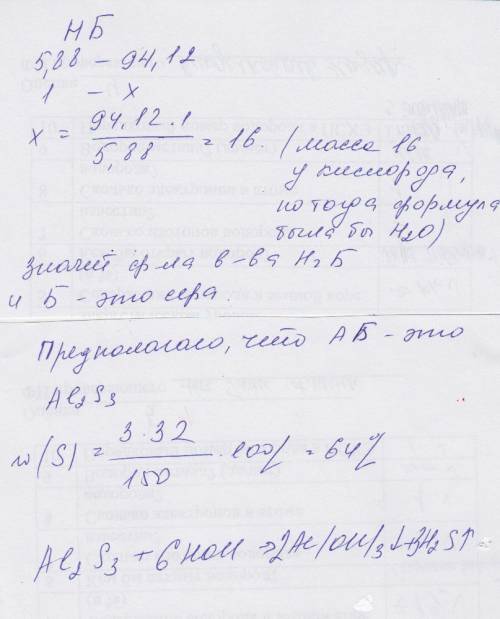 НБ
5,88 – 94,12
1 – х
х = 94,12·1 / 5,88 = 16. (масса 16
у кислорода,
но тогда формула
была бы H₂O)
значит ф-ла в-ва H₂Б
и Б – это сера
Предполагаю, что АБ – это
Al₂S₃
w(S) = 3·32 / 150 · 100% = 64%
Al₂S₃ + 6HOH → 2Al(OH)₃↓ + 3H₂S↑